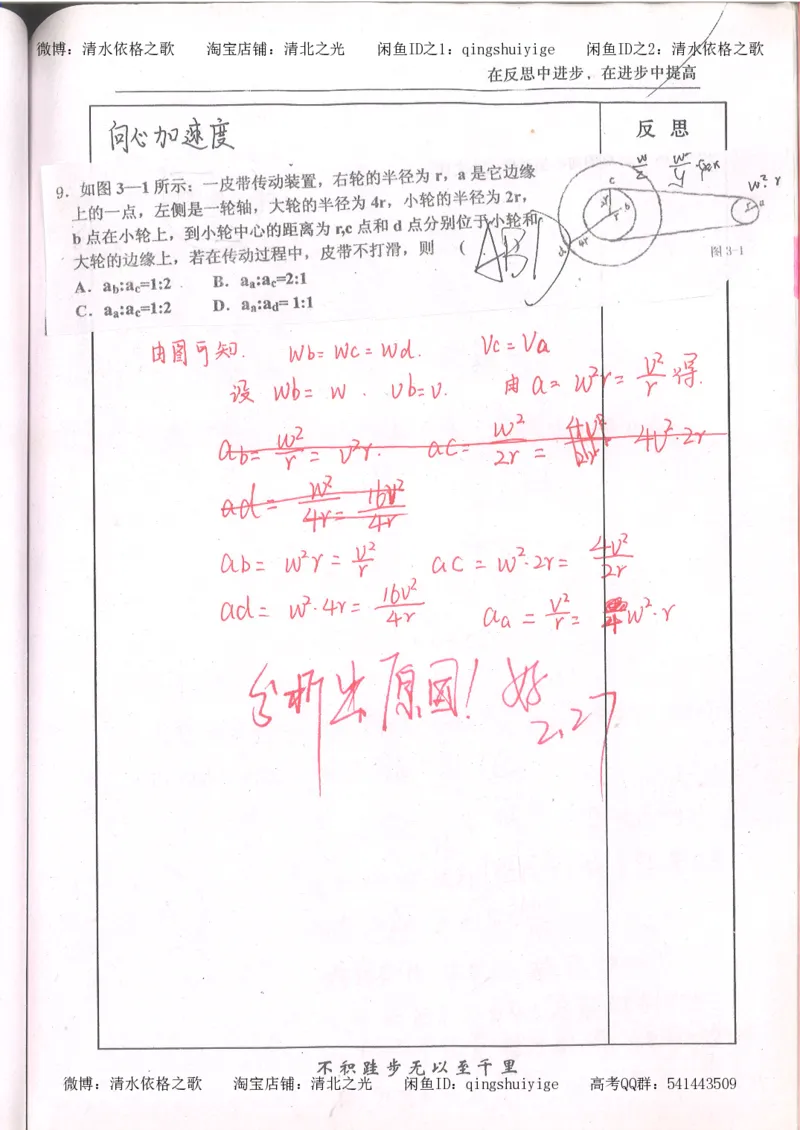 微博：清水依格之歌 淘宝店铺：清北之光 闲鱼ID之1：qingshuiyige 闲鱼ID之2：清水依格之歌
在反思中进步，在进步中提高
向心加速度
反 思
9．如图 3—1 所示：一皮带传动装置，右轮的半径为 r，a 是它边缘
上的一点，左侧是一轮轴，大轮的半径为 4r，小轮的半径为 2r，
b 点在小轮上，到小轮中心的距离为 r,c 点和 d 点分别位于小轮和
大轮的边缘上，若在传动过程中，皮带不打滑，则 （ ABD ）
A．ab:ac=1:2 B．aa:ac=2:1
C．aa:ac=1:2 D．aa:ad= 1:1
图 3-1
由图可知. Wb= Wc= Wd. Vc= Va
设 Wb= w . Vb=v. 由 a= w²r= v²/r 得.
ab= w²/r = v²r. ac= w²/2r = 4v²/2r 4v²·2r
ad= w²/4r= 16v²/4r
ab= w²r = v²/r ac = w²·2r= 4v²/2r
ad= w²·4r= 16v²/4r aa = v²/r = w²·r
分析出原因！好
2.27
不积跬步无以至千里
微博：清水依格之歌 淘宝店铺：清北之光 闲鱼ID：qingshuiyige 高考QQ群：541443509